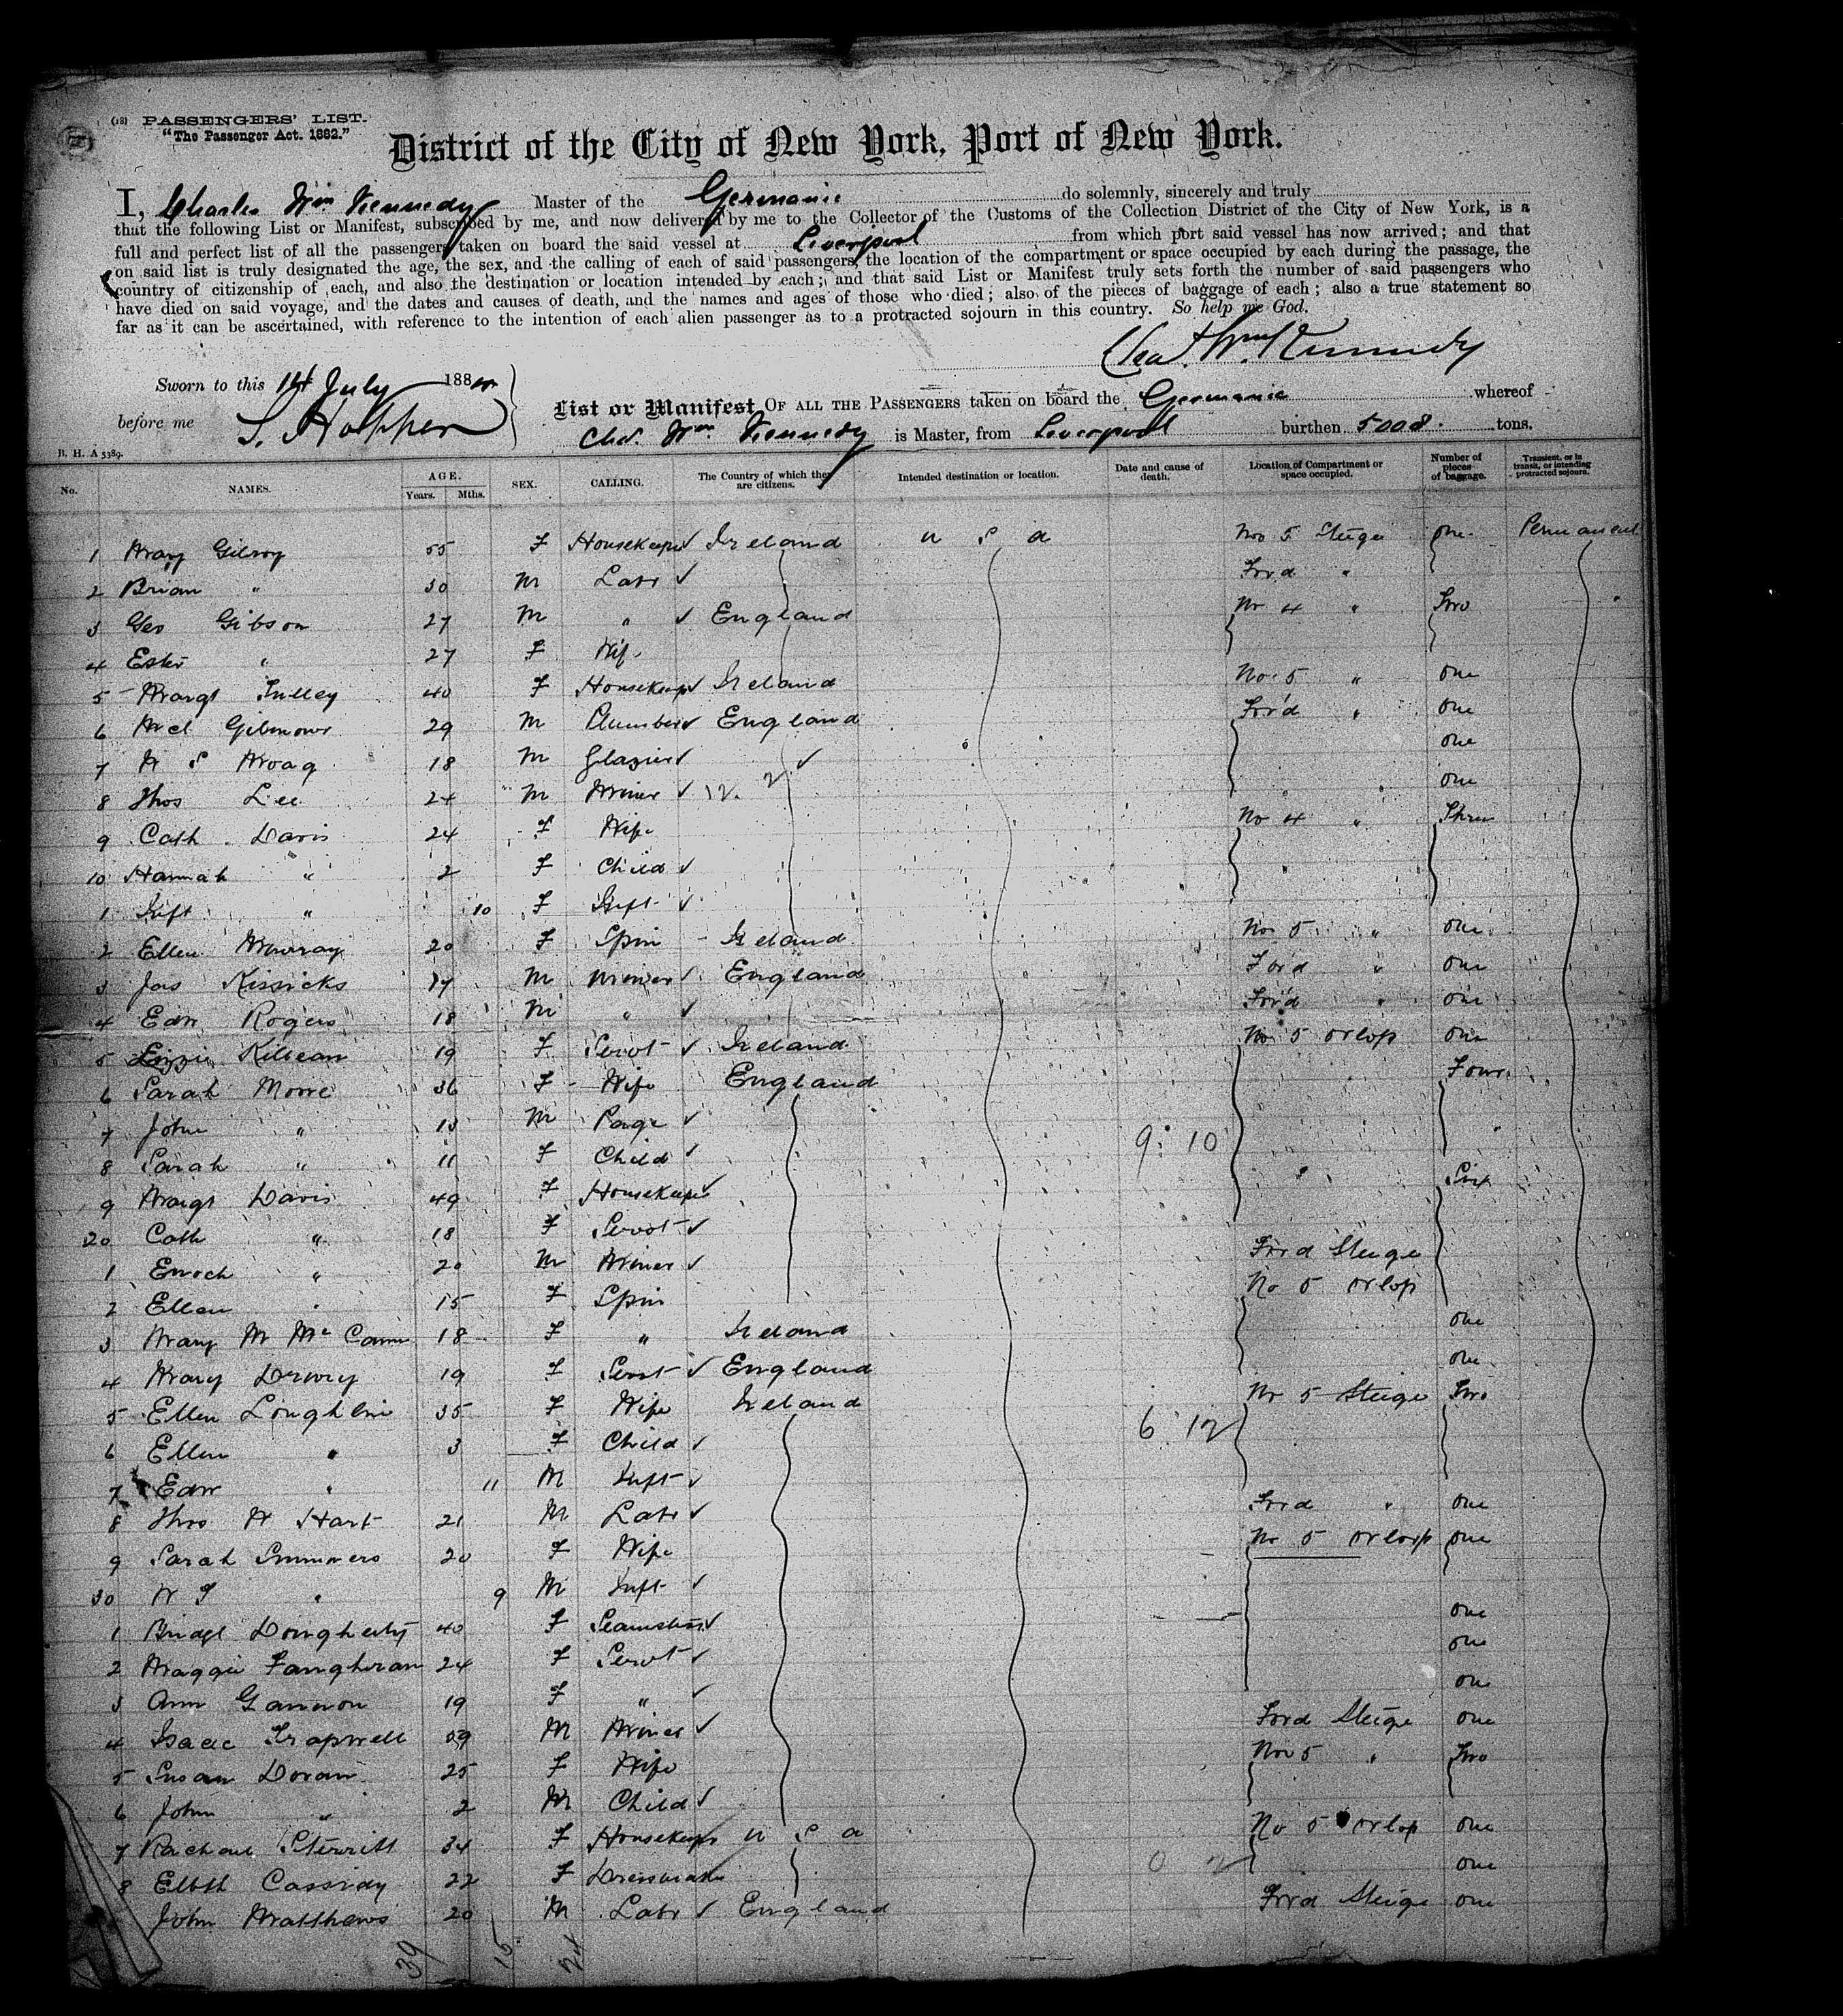 (18) PASSENGERS' LIST.
"The Passenger Act. 1882."
District of the City of New York, Port of New York.
I, Charles Wm Kennedy Master of the Germanic do solemnly, sincerely and truly
that the following List or Manifest, subscribed by me, and now delivered by me to the Collector of the Customs of the Collection District of the City of New York, is a
full and perfect list of all the passengers taken on board the said vessel at Liverpool from which port said vessel has now arrived; and that
on said list is truly designated the age, the sex, and the calling of each of said passengers, the location of the compartment or space occupied by each during the passage, the
country of citizenship of each, and also the destination or location intended by each; and that said List or Manifest truly sets forth the number of said passengers who
have died on said voyage, and the dates and causes of death, and the names and ages of those who died; also of the pieces of baggage of each; also a true statement so
far as it can be ascertained, with reference to the intention of each alien passenger as to a protracted sojourn in this country. So help me God.
Chas Wm Kennedy
Sworn to this July 188
before me S. Hopper
List or Manifest OF ALL THE PASSENGERS taken on board the Germanic whereof
Chas. Wm. Kennedy is Master, from Liverpool burthen 5008. tons.
B. H. A 5389.
No. NAMES. AGE. Years. Mths. SEX. CALLING. The Country of which they are citizens. Intended destination or location. Date and cause of death. Location of Compartment or space occupied. Number of pieces of baggage. Transient, or in transit, or intending protracted sojourn.
1 Mary Gilroy 55 F Housekeeper Ireland U S A No 5 Steige One Permanent
2 Brian " 30 M Labr For'd "
3 Geo Gibson 27 M " England No 4 " Two
4 Ester " 27 F Wife
5 Margt 40 F Housekeepr Ireland No 5 " One
6 Gilmour 29 M Plumber England For'd " One
7 W S 18 M Glazier One
8 Thos Lee 24 M Miner One
9 Cath Davis 24 F Wife No 4 " Three
10 Hannah " 2 F Child
1 Inft " 10 F Inft
2 Ellen Murray 20 F Spin Ireland No 5 " One
3 Jas Kissicks M Miner England Ford " One
4 Edw Rogers 18 M " For'd " One
5 Lizzie Killean 19 F Servt Ireland No 5 Orlop One
6 Sarah Moore 36 F Wife England Four
7 John " 13 M Page
8 Sarah " 11 F Child 9 10
9 Margt Davis 49 F Housekeeper Six
20 Cath " 18 F Servt
1 Enoch " 20 M Miner Ford Steige
2 Ellen " 15 F Spin No 5 Orlop
3 Mary M McCann 18 F " Ireland One
4 Mary Drury 19 F Servt England One
5 Ellen Loughlin 35 F Wife Ireland No 5 Steige Two
6 Ellen " 3 F Child 6 12
7 Edw " 11 M Inft
8 Thos W Hart 21 M Labr Ford " One
9 Sarah Summers 20 F Wife No 5 Orlop One
30 W " 9 M Inft
1 Bridgt Dougherty 40 F Seamstress One
2 Maggie 24 F Servt One
3 Ann Gannon 19 F " One
4 Isaac Trapwell 59 M Miner Ford Steige One
5 Susan Doran 25 F Wife No 5 " Two
6 John " 2 M Child
7 Rachael Sterritt 34 F Housekeepr U S A No 5 Orlop One
8 Elbth Cassidy 22 F Dressmaker 0 2 One
John Matthews 20 M Labr England Ford Steige One
39 15 24